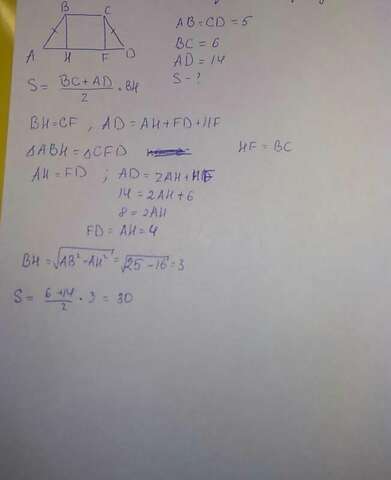 B C
A H F D
AB=CD=5
BC=6
AD=14
S-?
S= (BC+AD)/2 · BH
BH=CF, AD=AH+FD+HF
△ABH=△CFD HF=BC
AH=FD; AD=2AH+HF
14=2AH+6
8=2AH
FD=AH=4
BH=√(AB²-AH²)=√(25-16)=3
S= (6+14)/2 · 3 = 30